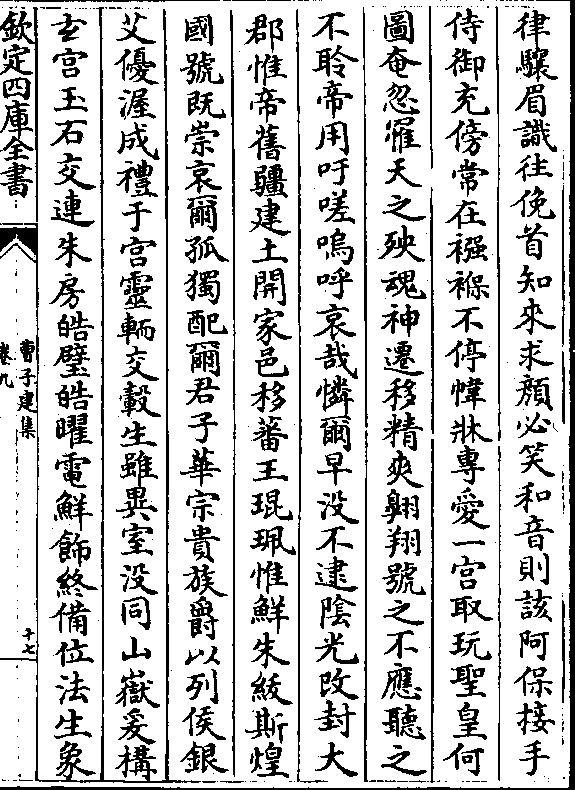 律驤眉識往俛首知來求顔必笑和音則該阿保接手
侍御充傍常在襁褓不停幃牀專愛一宫取玩聖皇何
圖奄忽罹天之殃魂神遷移精爽翺翔號之不應聽之
不聆帝用吁嗟嗚呼哀哉憐爾早没不逮隂光改封大
郡惟帝舊疆建土開家邑移蕃王琨珮惟鮮朱紱斯煌
國號既崇哀爾孤獨配爾君子華宗貴族爵以列侯銀
艾優渥成禮于宫靈輀交轂生雖異室没同山嶽爰構
玄宫玉石交連朱房皓壁皓曜電鮮飾終備位法生象
欽定四庫全書
曹子建集
卷九
十七